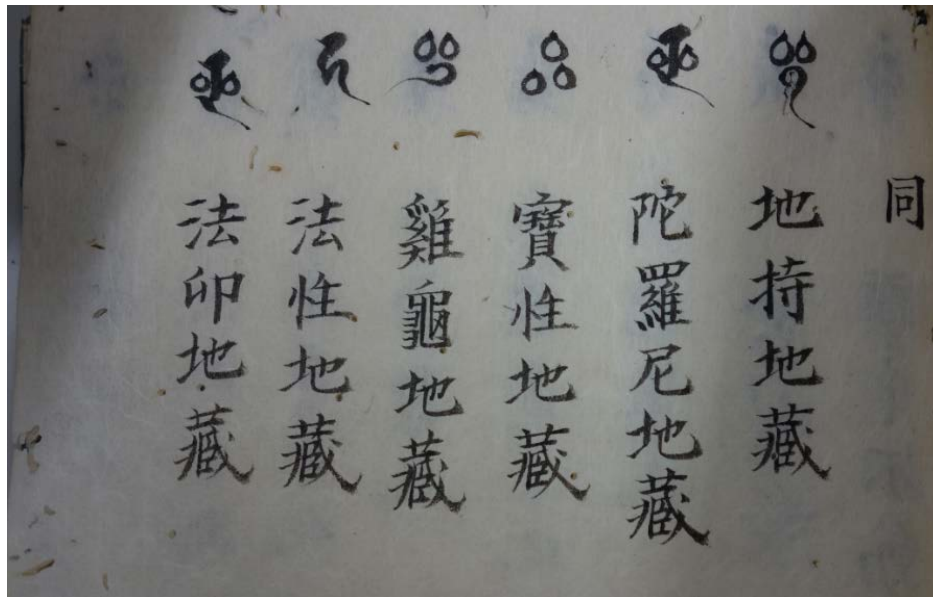 同
地持地藏
陀羅尼地藏
寶性地藏
雞龜地藏
法性地藏
法印地藏